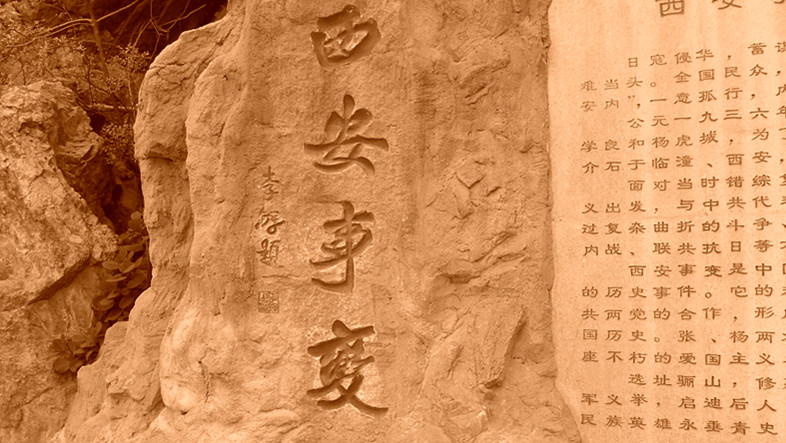 西安事變
李
题
西安
日寇侵华，蓄谋
难当头。全国民众，
安内”，一意孤行，
公元一九三六年
学良和杨虎城，为
介石于临潼、西安
面对当时错综复
义出发，与中共代表
过复杂、曲折的斗争
内战、联共抗日等
西安事变是中国
的历史事件。它的
共两党合作，形
国历史的。张、杨两
座不朽的爱国主义
选址骊山，修
义举，启迪后人
军民族英雄永垂青史